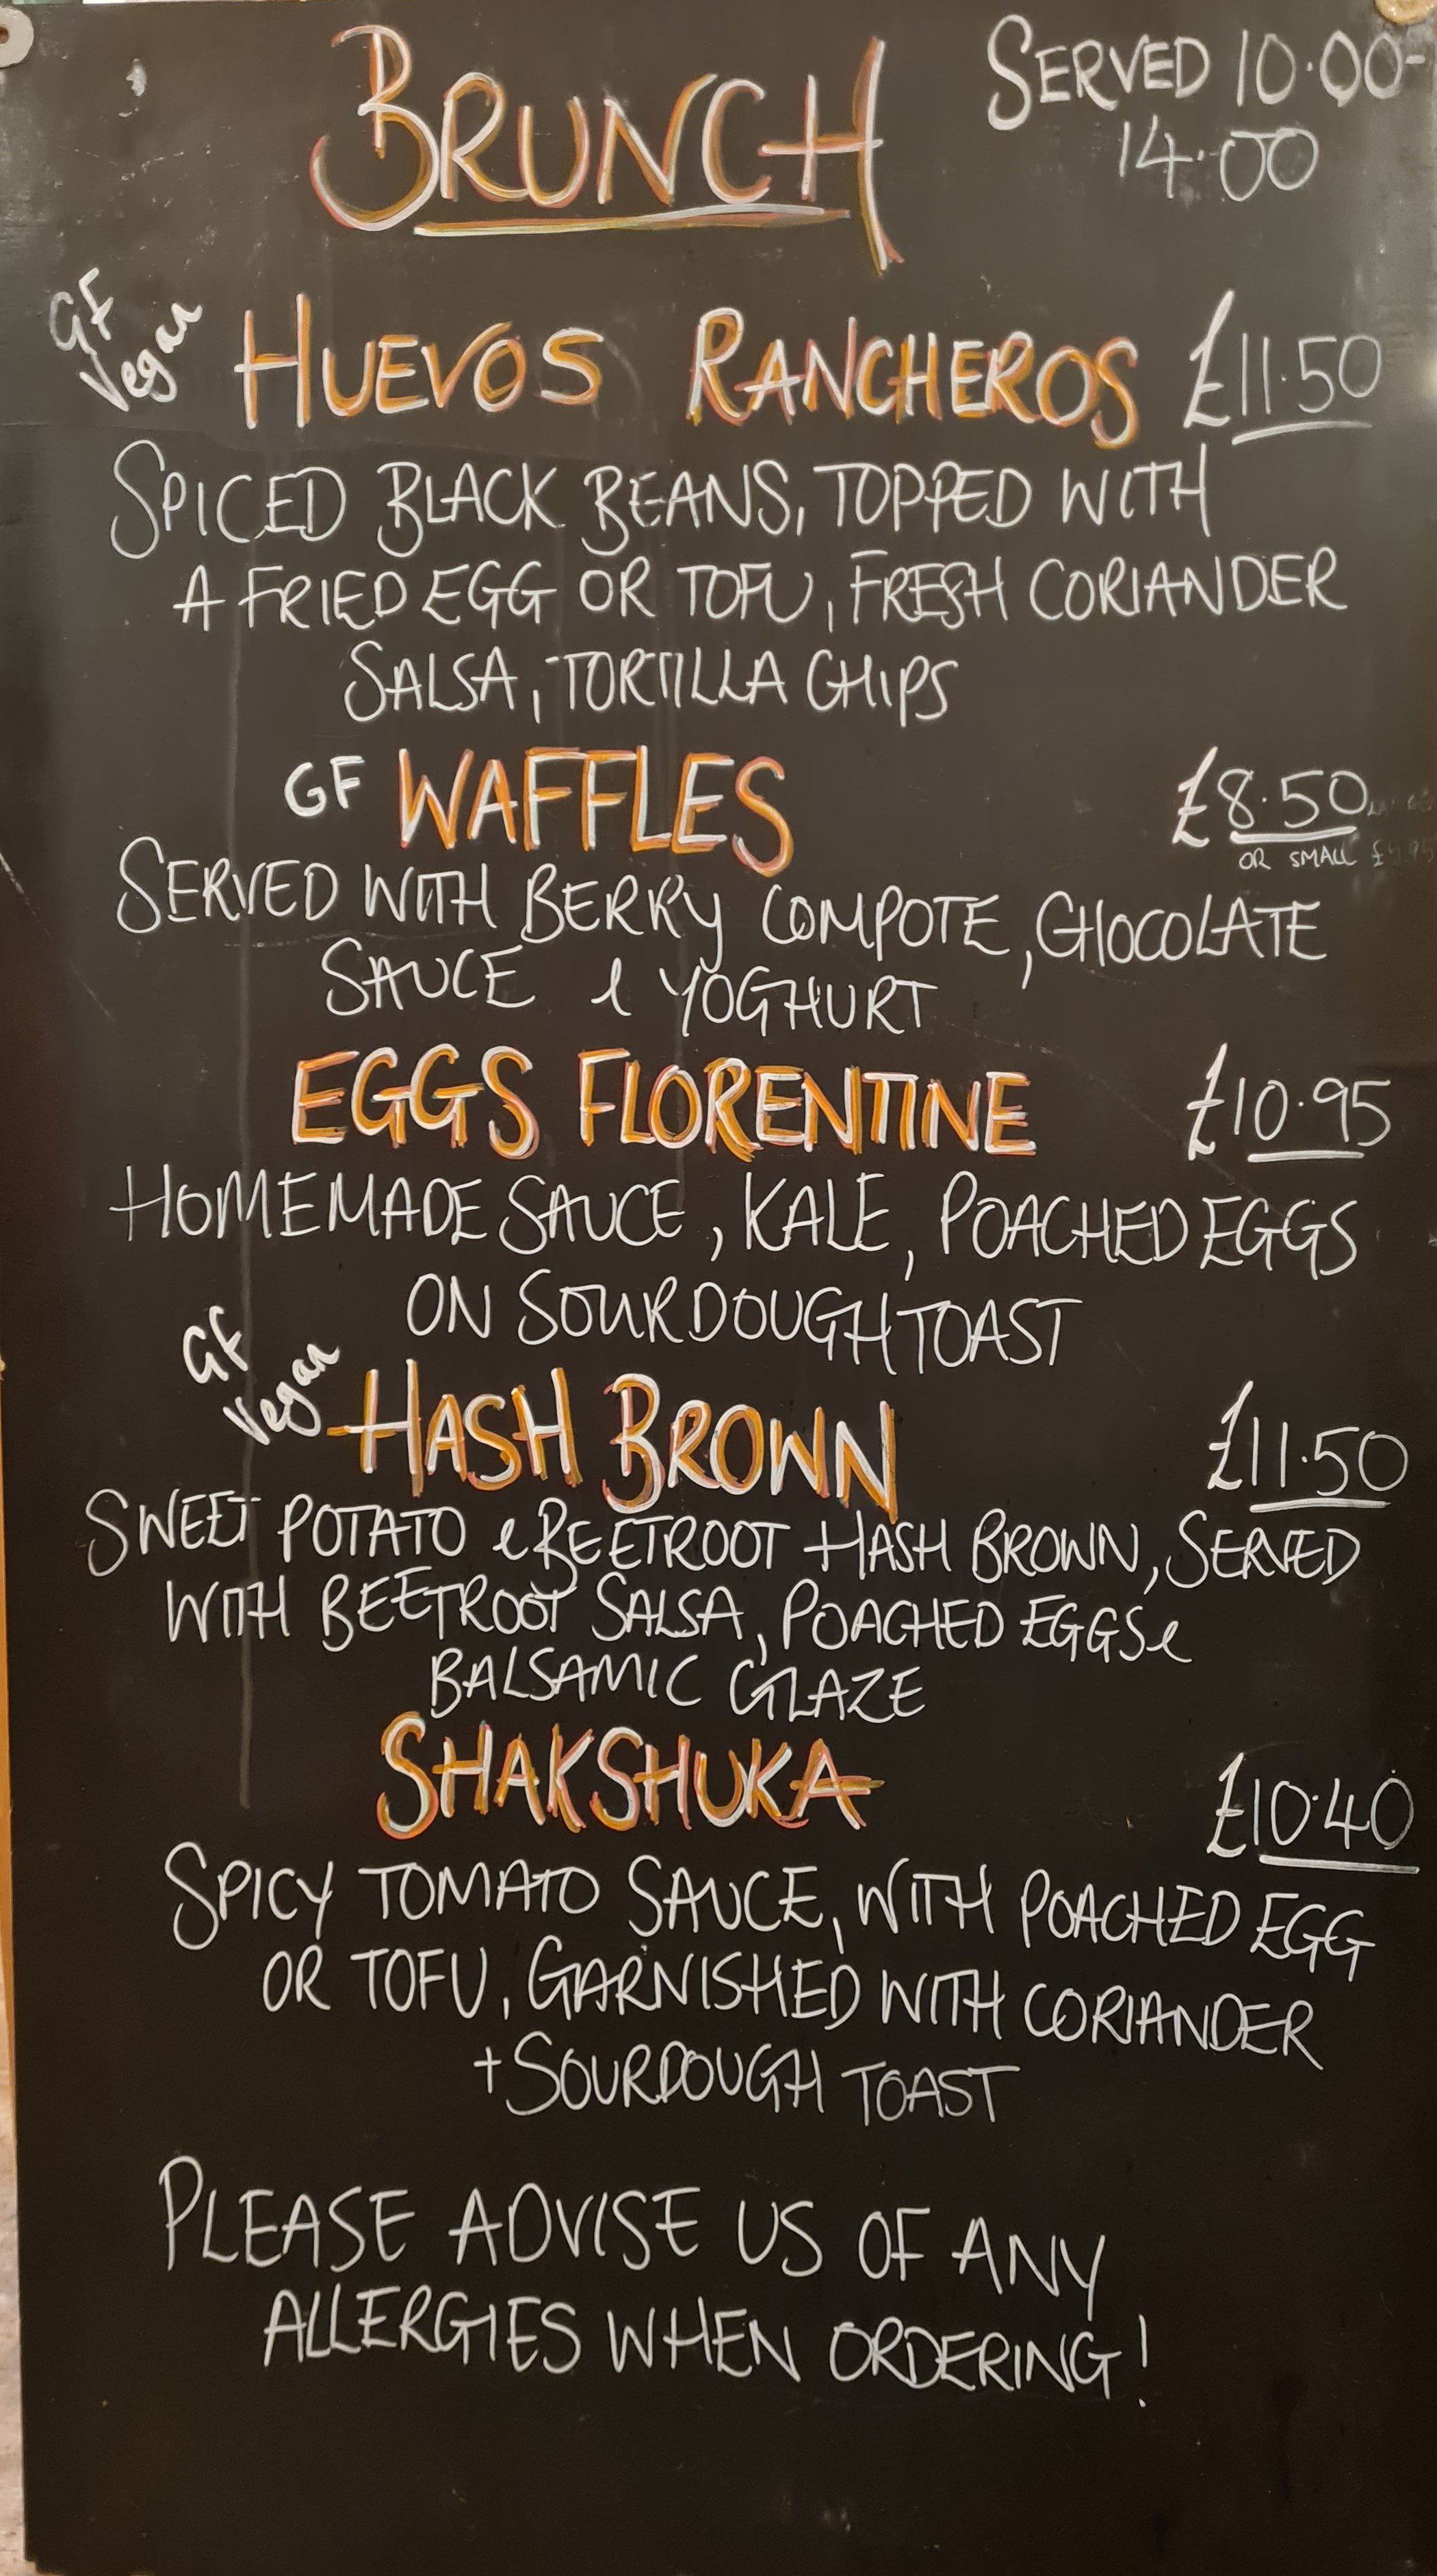 BRUNCH
SERVED 10.00-
14.00
GF
Vegan
HUEVOS RANCHEROS £11.50
SPICED BLACK BEANS, TOPPED WITH
A FRIED EGG OR TOFU, FRESH CORIANDER
SALSA, TORTILLA CHIPS
GF WAFFLES £8.50
OR SMALL
SERVED WITH BERRY COMPOTE, CHOCOLATE
SAUCE & YOGHURT
EGGS FLORENTINE £10.95
HOMEMADE SAUCE, KALE, POACHED EGGS
ON SOURDOUGH TOAST
GF
Vegan
HASH BROWN £11.50
SWEET POTATO & BEETROOT HASH BROWN, SERVED
WITH BEETROOT SALSA, POACHED EGGS &
BALSAMIC GLAZE
SHAKSHUKA £10.40
SPICY TOMATO SAUCE, WITH POACHED EGG
OR TOFU, GARNISHED WITH CORIANDER
+ SOURDOUGH TOAST
PLEASE ADVISE US OF ANY
ALLERGIES WHEN ORDERING!